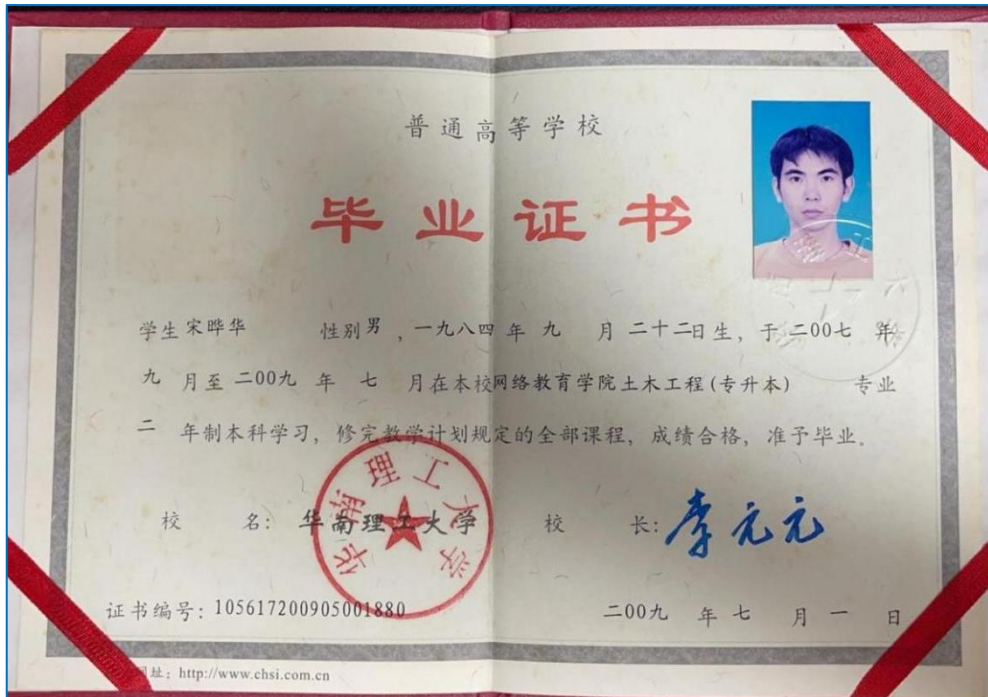 普通高等学校
毕业证书
学生宋晔华 性别男，一九八四年九月二十二日生，于二00七年
九月至二00九年七月在本校网络教育学院土木工程(专升本) 专业
二年制本科学习，修完教学计划规定的全部课程，成绩合格，准予毕业。
华南理工大学
校 名：华南理工大学 校 长：李元元
证书编号：105617200905001880 二00九年七月一日
网址：http://www.chsi.com.cn